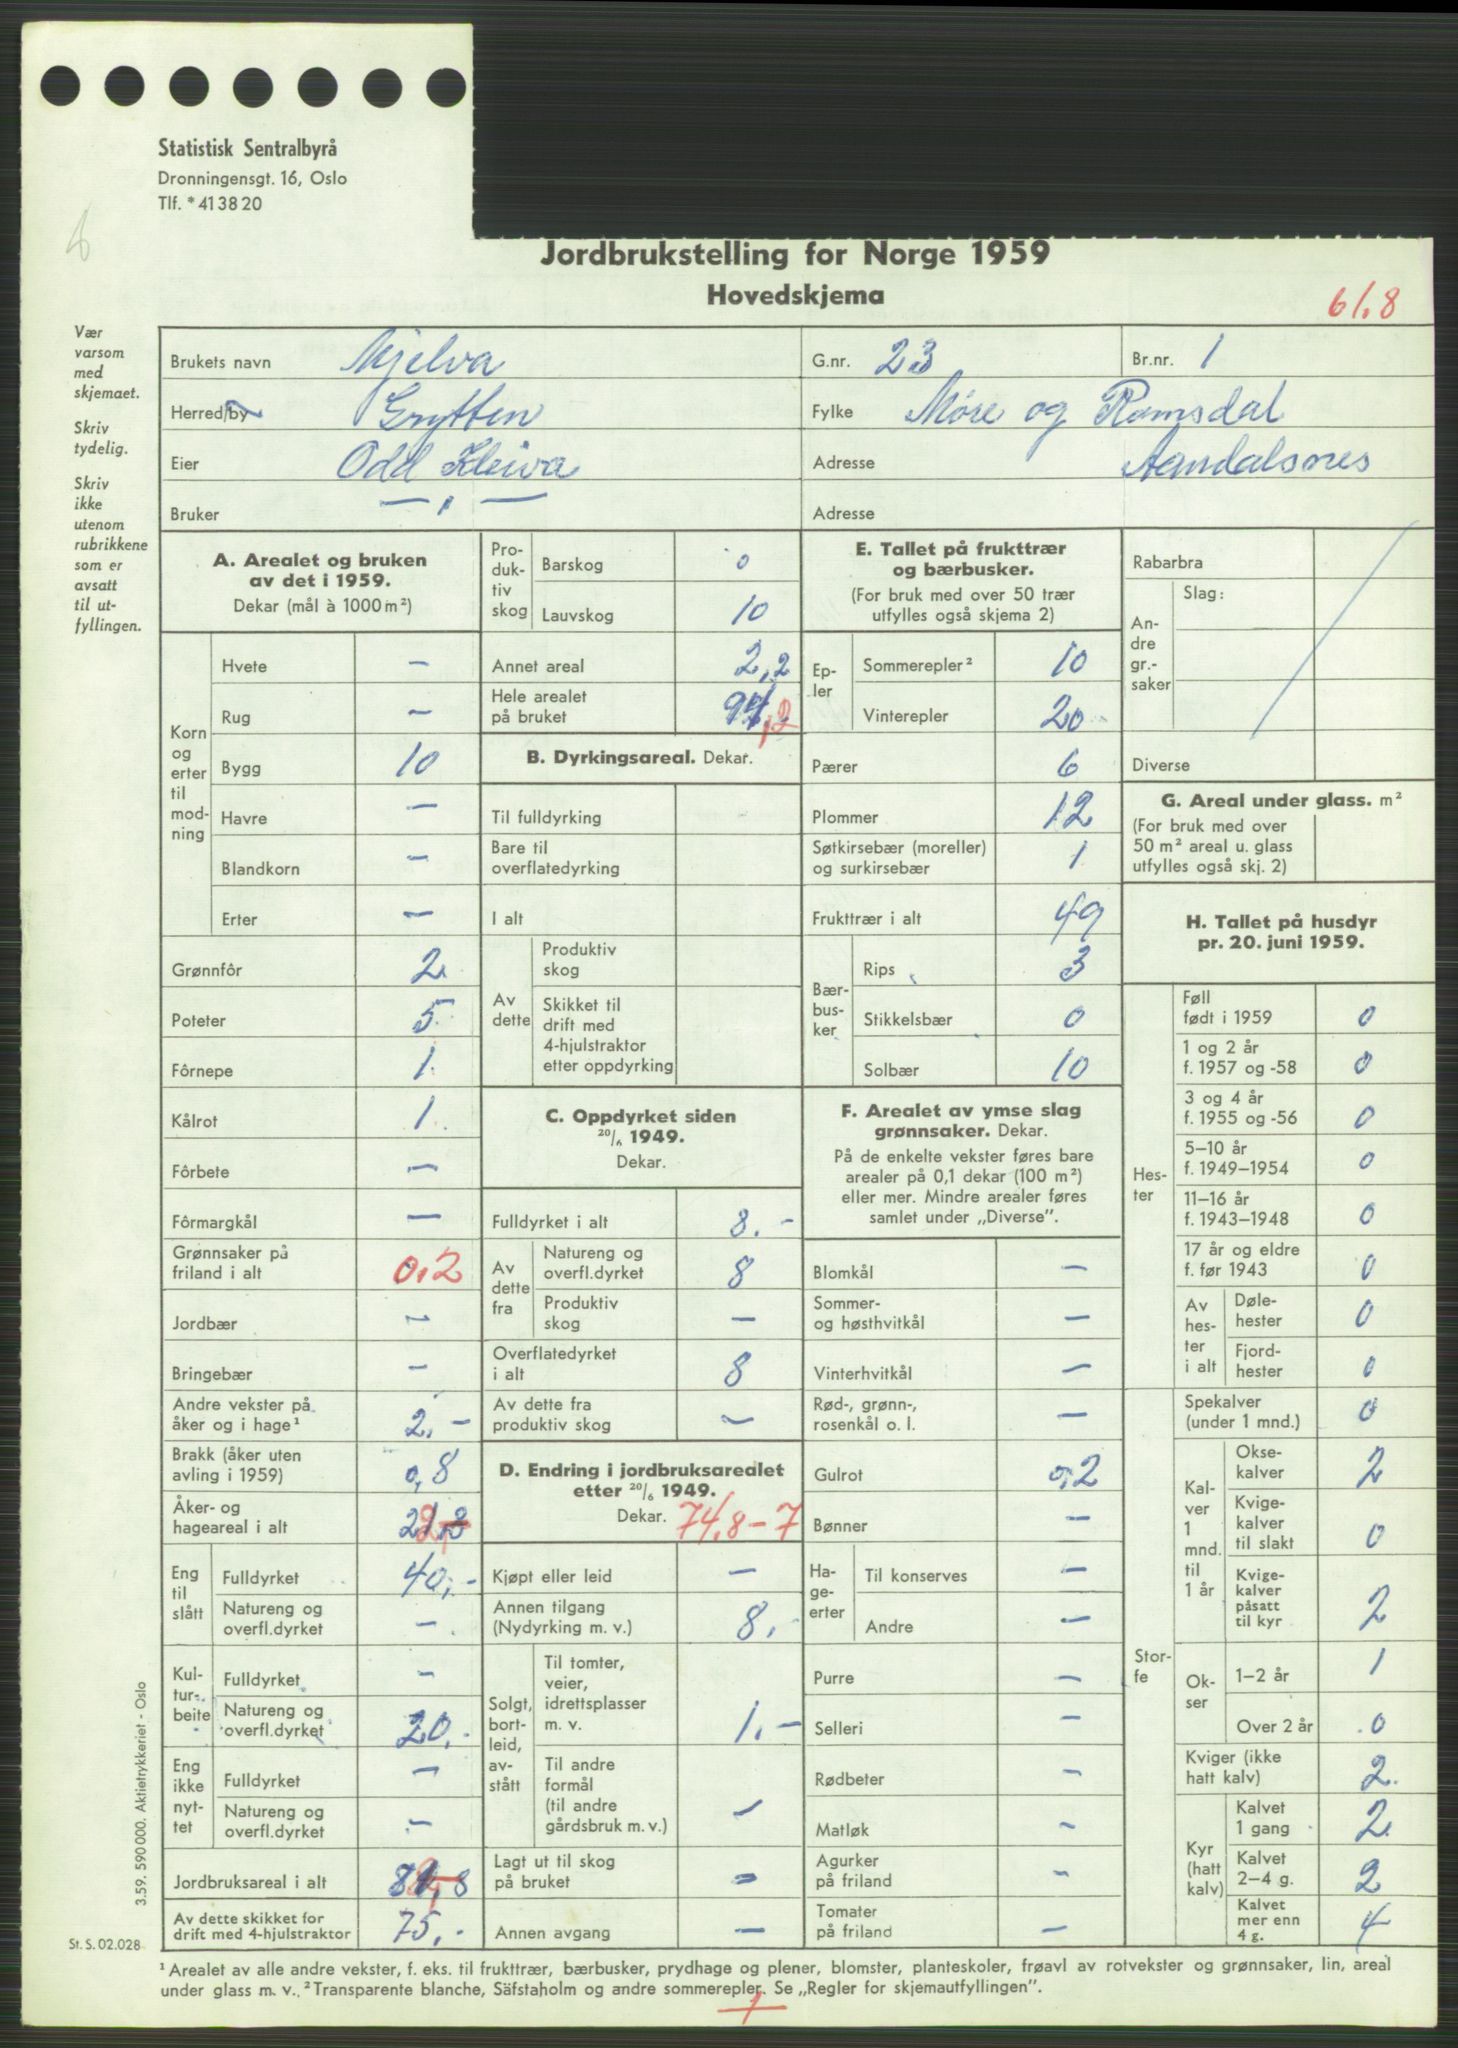 Statistisk Sentralbyrå
Dronningensgt. 16, Oslo
Tlf. * 41 38 20
Jordbrukstelling for Norge 1959
Hovedskjema
61.8
Vær varsom med skjemaet.
Skriv tydelig.
Skriv ikke utenom rubrikkene som er avsatt til ut-fyllingen.
Brukets navn Mjelva G.nr. 23 Br.nr. 1
Herred/by Grytten Fylke Møre og Romsdal
Eier Odd Kleiva Adresse Aandalsnes
Bruker — „ — Adresse
A. Arealet og bruken av det i 1959.
Dekar (mål à 1000 m²)
Korn og erter til mod-ning
Hvete –
Rug –
Bygg 10
Havre –
Blandkorn –
Erter –
Grønnfôr 2
Poteter 5
Fôrnepe 1
Kålrot 1
Fôrbete –
Fôrmargkål –
Grønnsaker på friland i alt 0,2
Jordbær –
Bringebær –
Andre vekster på åker og i hage¹ 2,-
Brakk (åker uten avling i 1959) 0,8
Åker- og hageareal i alt
Eng til slått
Fulldyrket 40,-
Natureng og overfl.dyrket –
Kul-tur-beite
Fulldyrket –
Natureng og overfl.dyrket 20,-
Eng ikke nyt-tet
Fulldyrket –
Natureng og overfl.dyrket –
Jordbruksareal i alt
Av dette skikket for drift med 4-hjulstraktor 75,-
Pro-duk-tiv skog
Barskog 0
Lauvskog 10
Annet areal 2,2
Hele arealet på bruket 94,2
B. Dyrkingsareal. Dekar.
Til fulldyrking
Bare til overflatedyrking
I alt
Av dette
Produktiv skog
Skikket til drift med 4-hjulstraktor etter oppdyrking
C. Oppdyrket siden 20/6 1949.
Dekar.
Fulldyrket i alt 8.-
Av dette fra
Natureng og overfl.dyrket 8
Produktiv skog –
Overflatedyrket i alt 8
Av dette fra produktiv skog –
D. Endring i jordbruksarealet etter 20/6 1949.
Dekar. 74,8-7
Kjøpt eller leid –
Annen tilgang (Nydyrking m. v.) 8,-
Solgt, bort-leid, av-stått
Til tomter, veier, idrettsplasser m. v. 1.-
Til andre formål (til andre gårdsbruk m. v.) –
Lagt ut til skog på bruket –
Annen avgang –
E. Tallet på frukttrær og bærbusker.
(For bruk med over 50 trær utfylles også skjema 2)
Ep-ler
Sommerepler² 10
Vinterepler 20
Pærer 6
Plommer 12
Søtkirsebær (moreller) og surkirsebær 1
Frukttrær i alt 49
Bær-bus-ker
Rips 3
Stikkelsbær 0
Solbær 10
F. Arealet av ymse slag grønnsaker. Dekar.
På de enkelte vekster føres bare arealer på 0,1 dekar (100 m²) eller mer. Mindre arealer føres samlet under „Diverse”.
Blomkål –
Sommer- og høsthvitkål –
Vinterhvitkål –
Rød-, grønn-, rosenkål o. l. –
Gulrot 0,2
Bønner –
Ha-ge-erter
Til konserves –
Andre –
Purre –
Selleri –
Rødbeter –
Matløk –
Agurker på friland –
Tomater på friland –
Rabarbra
An-dre gr.-saker
Slag:
Diverse
G. Areal under glass. m²
(For bruk med over 50 m² areal u. glass utfylles også skj. 2)
H. Tallet på husdyr pr. 20. juni 1959.
Hes-ter
Føll født i 1959 0
1 og 2 år f. 1957 og -58 0
3 og 4 år f. 1955 og -56 0
5–10 år f. 1949–1954 0
11–16 år f. 1943–1948 0
17 år og eldre f. før 1943 0
Av hes-ter i alt
Døle-hester 0
Fjord-hester 0
Stor-fe
Spekalver (under 1 mnd.) 0
Kal-ver 1 mnd. til 1 år
Okse-kalver 2
Kvige-kalver til slakt 0
Kvige-kalver påsatt til kyr 2
Ok-ser
1–2 år 1
Over 2 år 0
Kviger (ikke hatt kalv) 2
Kyr (hatt kalv)
Kalvet 1 gang 2
Kalvet 2–4 g. 2
Kalvet mer enn 4 g. 4
3.59. 590 000. Aktietrykkeriet - Oslo
St. S. 02.028
¹ Arealet av alle andre vekster, f. eks. til frukttrær, bærbusker, prydhage og plener, blomster, planteskoler, frøavl av rotvekster og grønnsaker, lin, areal
under glass m. v. ² Transparente blanche, Säfstaholm og andre sommerepler. Se „Regler for skjemautfyllingen”.